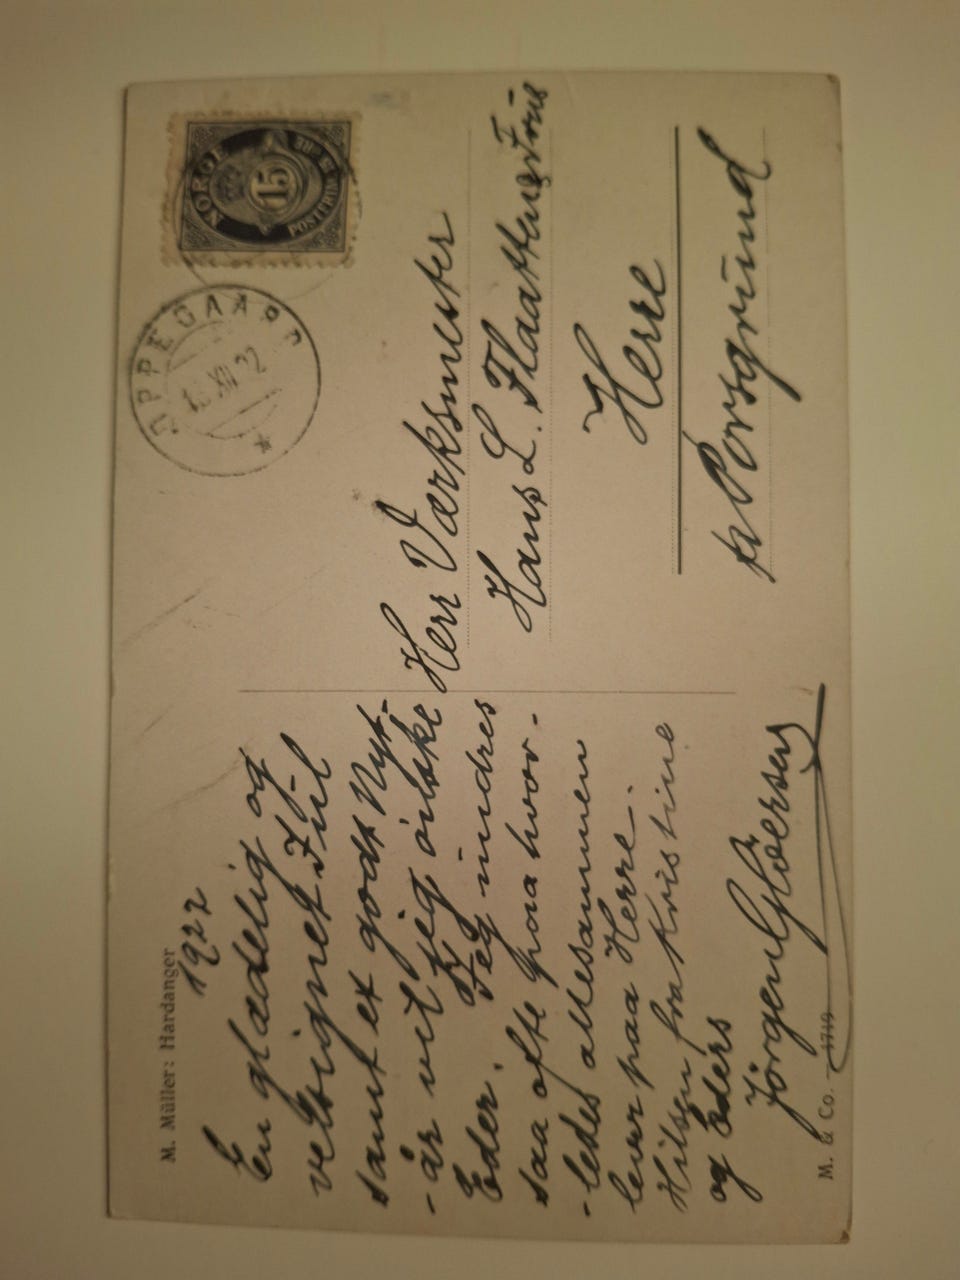 M. Müller: Hardanger
1922
En glædelig og
velsignet Jul
samt et godt Nyt-
-år vil jeg önske
Eder. Jeg undres
saa ofte paa hvor-
-ledes allesammen
lever paa Herre.
Hilsen fra Kristine
og Eders
Jörgen
M. & Co. 1719
NORGE
15
POSTFRIM
OPPEGAARD
XII 22
Herr Værksmester
Hans L. Flaatten
Herre
pr Porsgrund